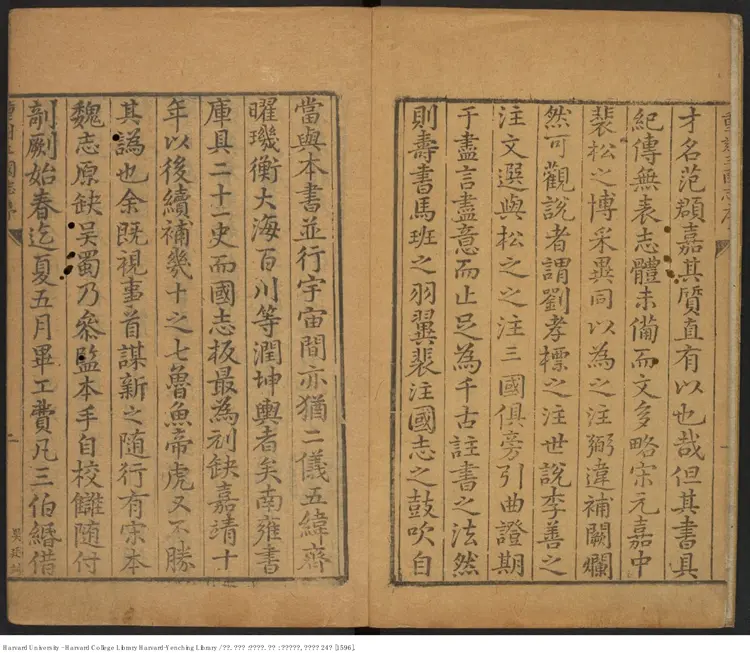 才名范頵嘉其質直有以也哉但其書具
紀傳無表志體未備而文多略宋元嘉中
裴松之博采異同以為之注彌違補闕爛
然可觀說者謂劉孝標之注世說李善之
注文選與松之之注三國俱旁引曲證期
于盡言盡意而止足為千古註書之法然
則壽書馬班之羽翼裴注國志之鼓吹自
當與本書並行宇宙間亦猶二儀五緯齊
曜璣衡大海百川等潤坤輿者矣南雍書
庫具二十一史而國志板最為刓缺嘉靖十
年以後續補幾十之七魯魚帝虎又不勝
其譌也余既視事首謀新之随行有宋本
魏志原缺吴蜀乃叅監本手自校讎随付
剞劂始春迄夏五月畢工費凡三伯緡借
Harvard University - Harvard College Library Harvard-Yenching Library / ??. ??? :????. ?? : ?????, ???? 24? [1596].